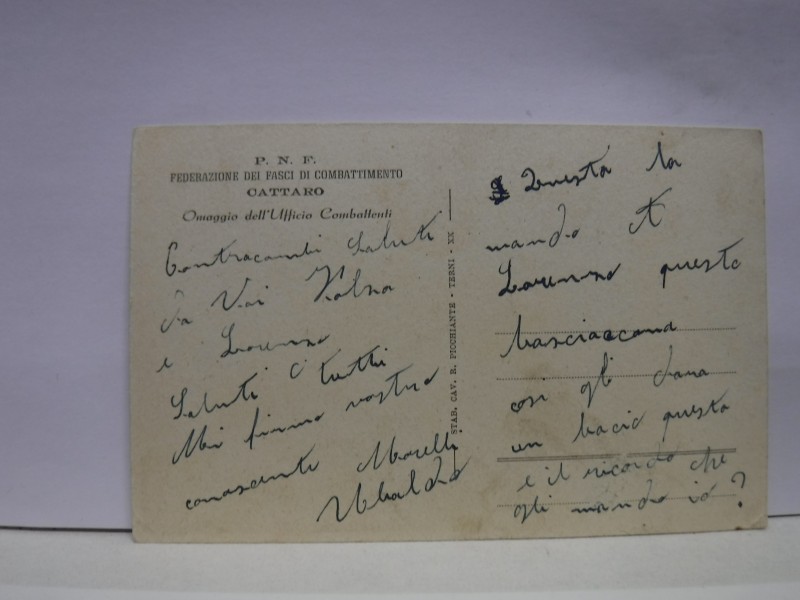 P. N. F.
FEDERAZIONE DEI FASCI DI COMBATTIMENTO
CATTARO
Omaggio dell'Ufficio Combattenti
Contracambi Saluti
da Voi
e Lorenzo
Saluti a tutti
Mi firmo vostro
conoscente Morelli
Ubaldo
STAB. CAV. R. PICCHIANTE - TERNI - XX
Questa la
mando a
Lorenzo questa
così gli dara
un bacio questa
e il ricordo che
gli mando io?